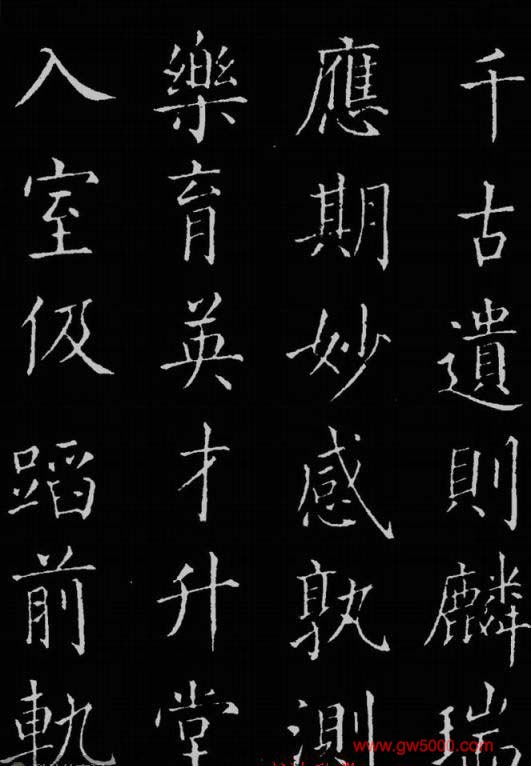 千古遺則麟瑞
應期妙感孰測
樂育英才升堂
入室伋蹈前軌
www.gw5000.com